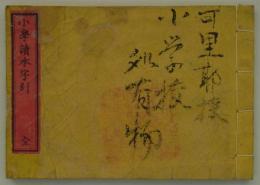 可里郡校
小学校
処有物
小學讀本字引
全